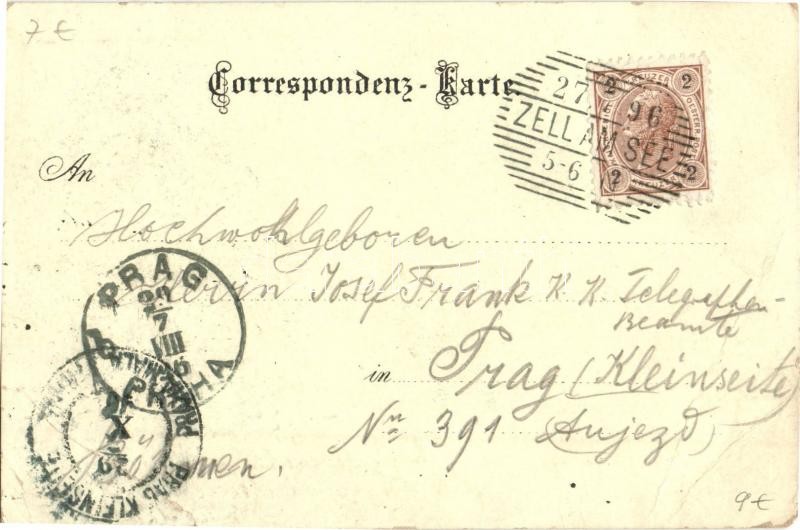 7 €
Correspondenz-Karte.
2 KREUZER 2
27 96
ZELL AM SEE
5-6
2 2
An
Hochwohlgeboren
PRAG
Herrn Josef Frank K. K. Telegrafen-
Beamte
7
VIII
in Prag (Kleinseite)
PRAHA
Nro 391 Aujezd
Böhmen.
PRAG KLEINSEITE
9€